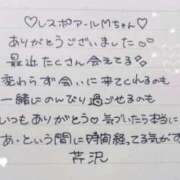 ♡レスポアールMちゃん♡
ありがとうございました
最近たくさん会えてる
変わらず会いに来てくれるのも
一緒にのんびり過ごせるのも
いつもありがとう♡気づいたら本当に
あっという間に時間経ってる気がす
芹沢